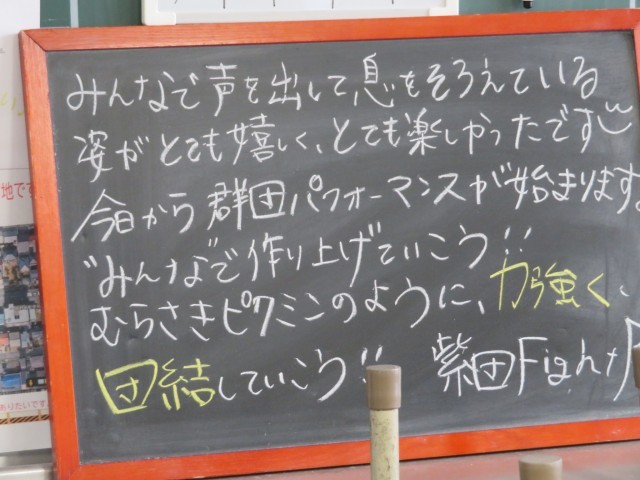 みんなで声を出して息をそろえている
姿がとても嬉しく、とても楽しかったです
今日から群団パフォーマンスが始まります。
"みんな"で作り上げていこう!!
むらさきピクミンのように、力強く、
団結していこう!! 紫団Fight
地です
ありたいです